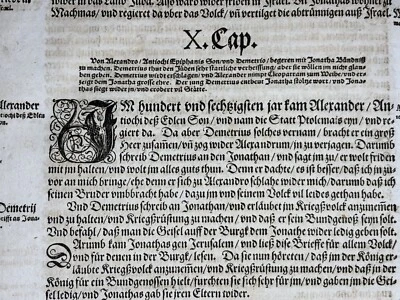 Machmas/ vnd regieret da vber das Volck/ vñ vertilget die abtrünnigen auß Israel.
X. Cap.
Von Alexandro/ Antiochi Epiphanis Son/ vnd Demetrio/ begeren mit Jonatha Bündniß
zu machen. Demetrius thut den Jüden sehr stattliche verheissung/ aber sie wöllen jm nicht glau
ben geben. Demetrius wirdt erschlagen/ vnd Alexander nimpt Cleopatram zum Weibe/ vnd er-
zeigt dem Jonatha grosse ehre. Der jung Demetrius entbeut Jonathe stoltze wort/ vnd Jona-
thas siegt wider jn/ vnd erobert vil Stätte.
UM hundert vnd sechtzigsten jar kam Alexander/ An-
tiochi deß Edlen Son/ vnd nam die Statt Ptolemais eyn/ vnd re-
giert da. Da aber Demetrius solches vernam/ bracht er ein groß
Heer zusamen/ vñ zog wider Alexandrum/ in zu verjagen. Darumb
schreib Demetrius an den Jonathan/ vnd sagt im zu/ er wolt frieden
mit im halten/ vnd wolt im alles guts thun. Denn er dachte/ es ist besser/ daß ich in zu-
vor an mich bringe/ ehe denn er sich zu Alexandro schlahe wider mich/ darumb daß ich
seinen Bruder vmbbracht habe/ dazu im vnd seinem Volck vil leides gethan habe.
Vnd Demetrius schreib an Jonathan/ vnd erläubt im Kriegßvolck anzunemen
vnd zu halten/ vnd Kriegßrüstung zu machen/ vnd daß er sein Bundgenoß seyn solt.
Vnd befahl/ daß man die Geisel auff der Burgk dem Jonathe wider ledig geben solt.
Darumb kam Jonathas gen Jerusalem/ vnd ließ dise Brieffe für allem Volck/
vnd für denen in der Burgk/ lesen. Da sie nun höreten/ daß jm der König er-
läubte Kriegßvolck anzunemen/ vnd Kriegßrüstung zu machen/ vnd daß in der
König für ein Bundgenossen hielt/ furchten sie sich sehr für im/ vnd gaben im die Gei-
sel ledig/ vnd Jonathas gab sie jren Eltern wider.
Alexander
deß Edlen
Demetrij